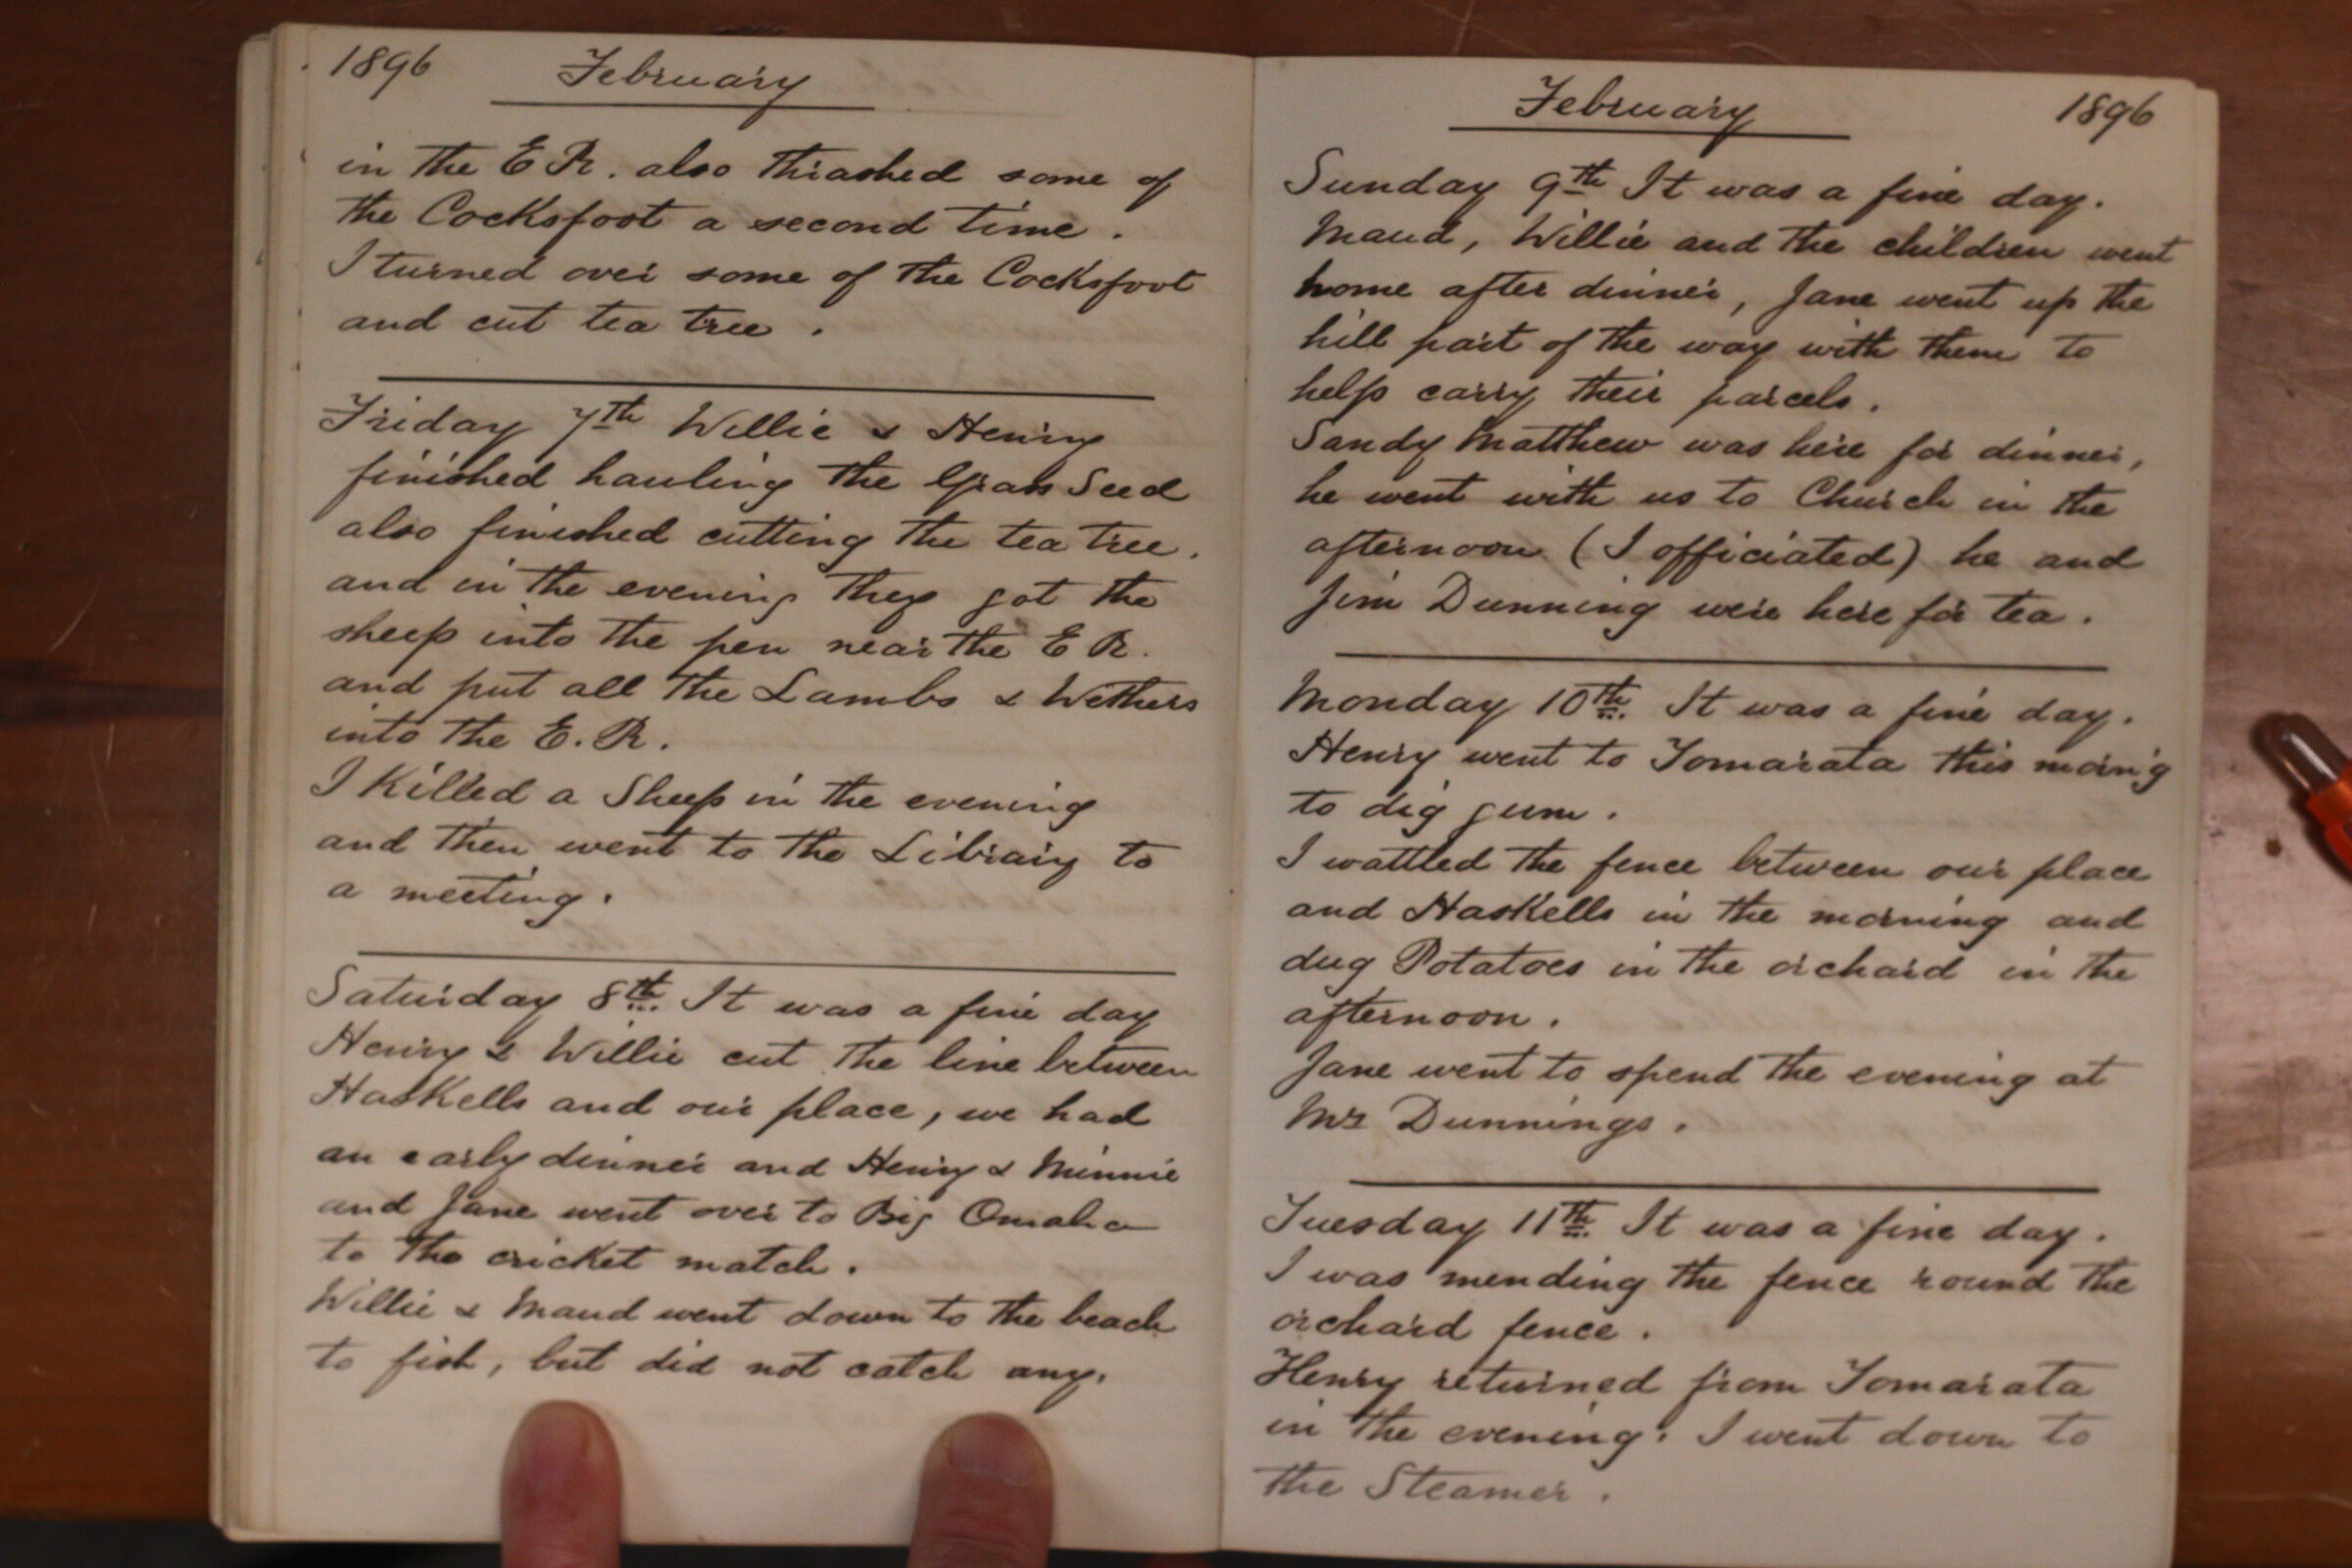 1896 February
in the E R. also thrashed some of
the Cocksfoot a second time.
I turned over some of the Cocksfoot
and cut tea tree.
Friday 7th Willie & Henry
finished hauling the Grass Seed
also finished cutting the tea tree.
and in the evening they got the
sheep into the pen near the E R.
and put all the Lambs & Wethers
into the E. R.
I Killed a Sheep in the evening
and then went to the Library to
a meeting.
Saturday 8th. It was a fine day
Henry & Willie cut the line between
Haskells and our place, we had
an early dinner and Henry & Minnie
and Jane went over to Big Omaha
to the cricket match.
Willie & Maud went down to the beach
to fish, but did not catch any.
February 1896
Sunday 9th It was a fine day.
Maud, Willie and the children went
home after dinner, Jane went up the
hill part of the way with them to
help carry their parcels.
Sandy Matthew was here for dinner,
he went with us to Church in the
afternoon (I officiated) he and
Jim Dunning were here for tea.
Monday 10th. It was a fine day.
Henry went to Tomarata this morn'g
to dig gum.
I wattled the fence between our place
and Haskells in the morning and
dug Potatoes in the orchard in the
afternoon.
Jane went to spend the evening at
Mr Dunnings.
Tuesday 11th. It was a fine day.
I was mending the fence 'round the
orchard fence.
Henry returned from Tomarata
in the evening. I went down to
the Steamer.